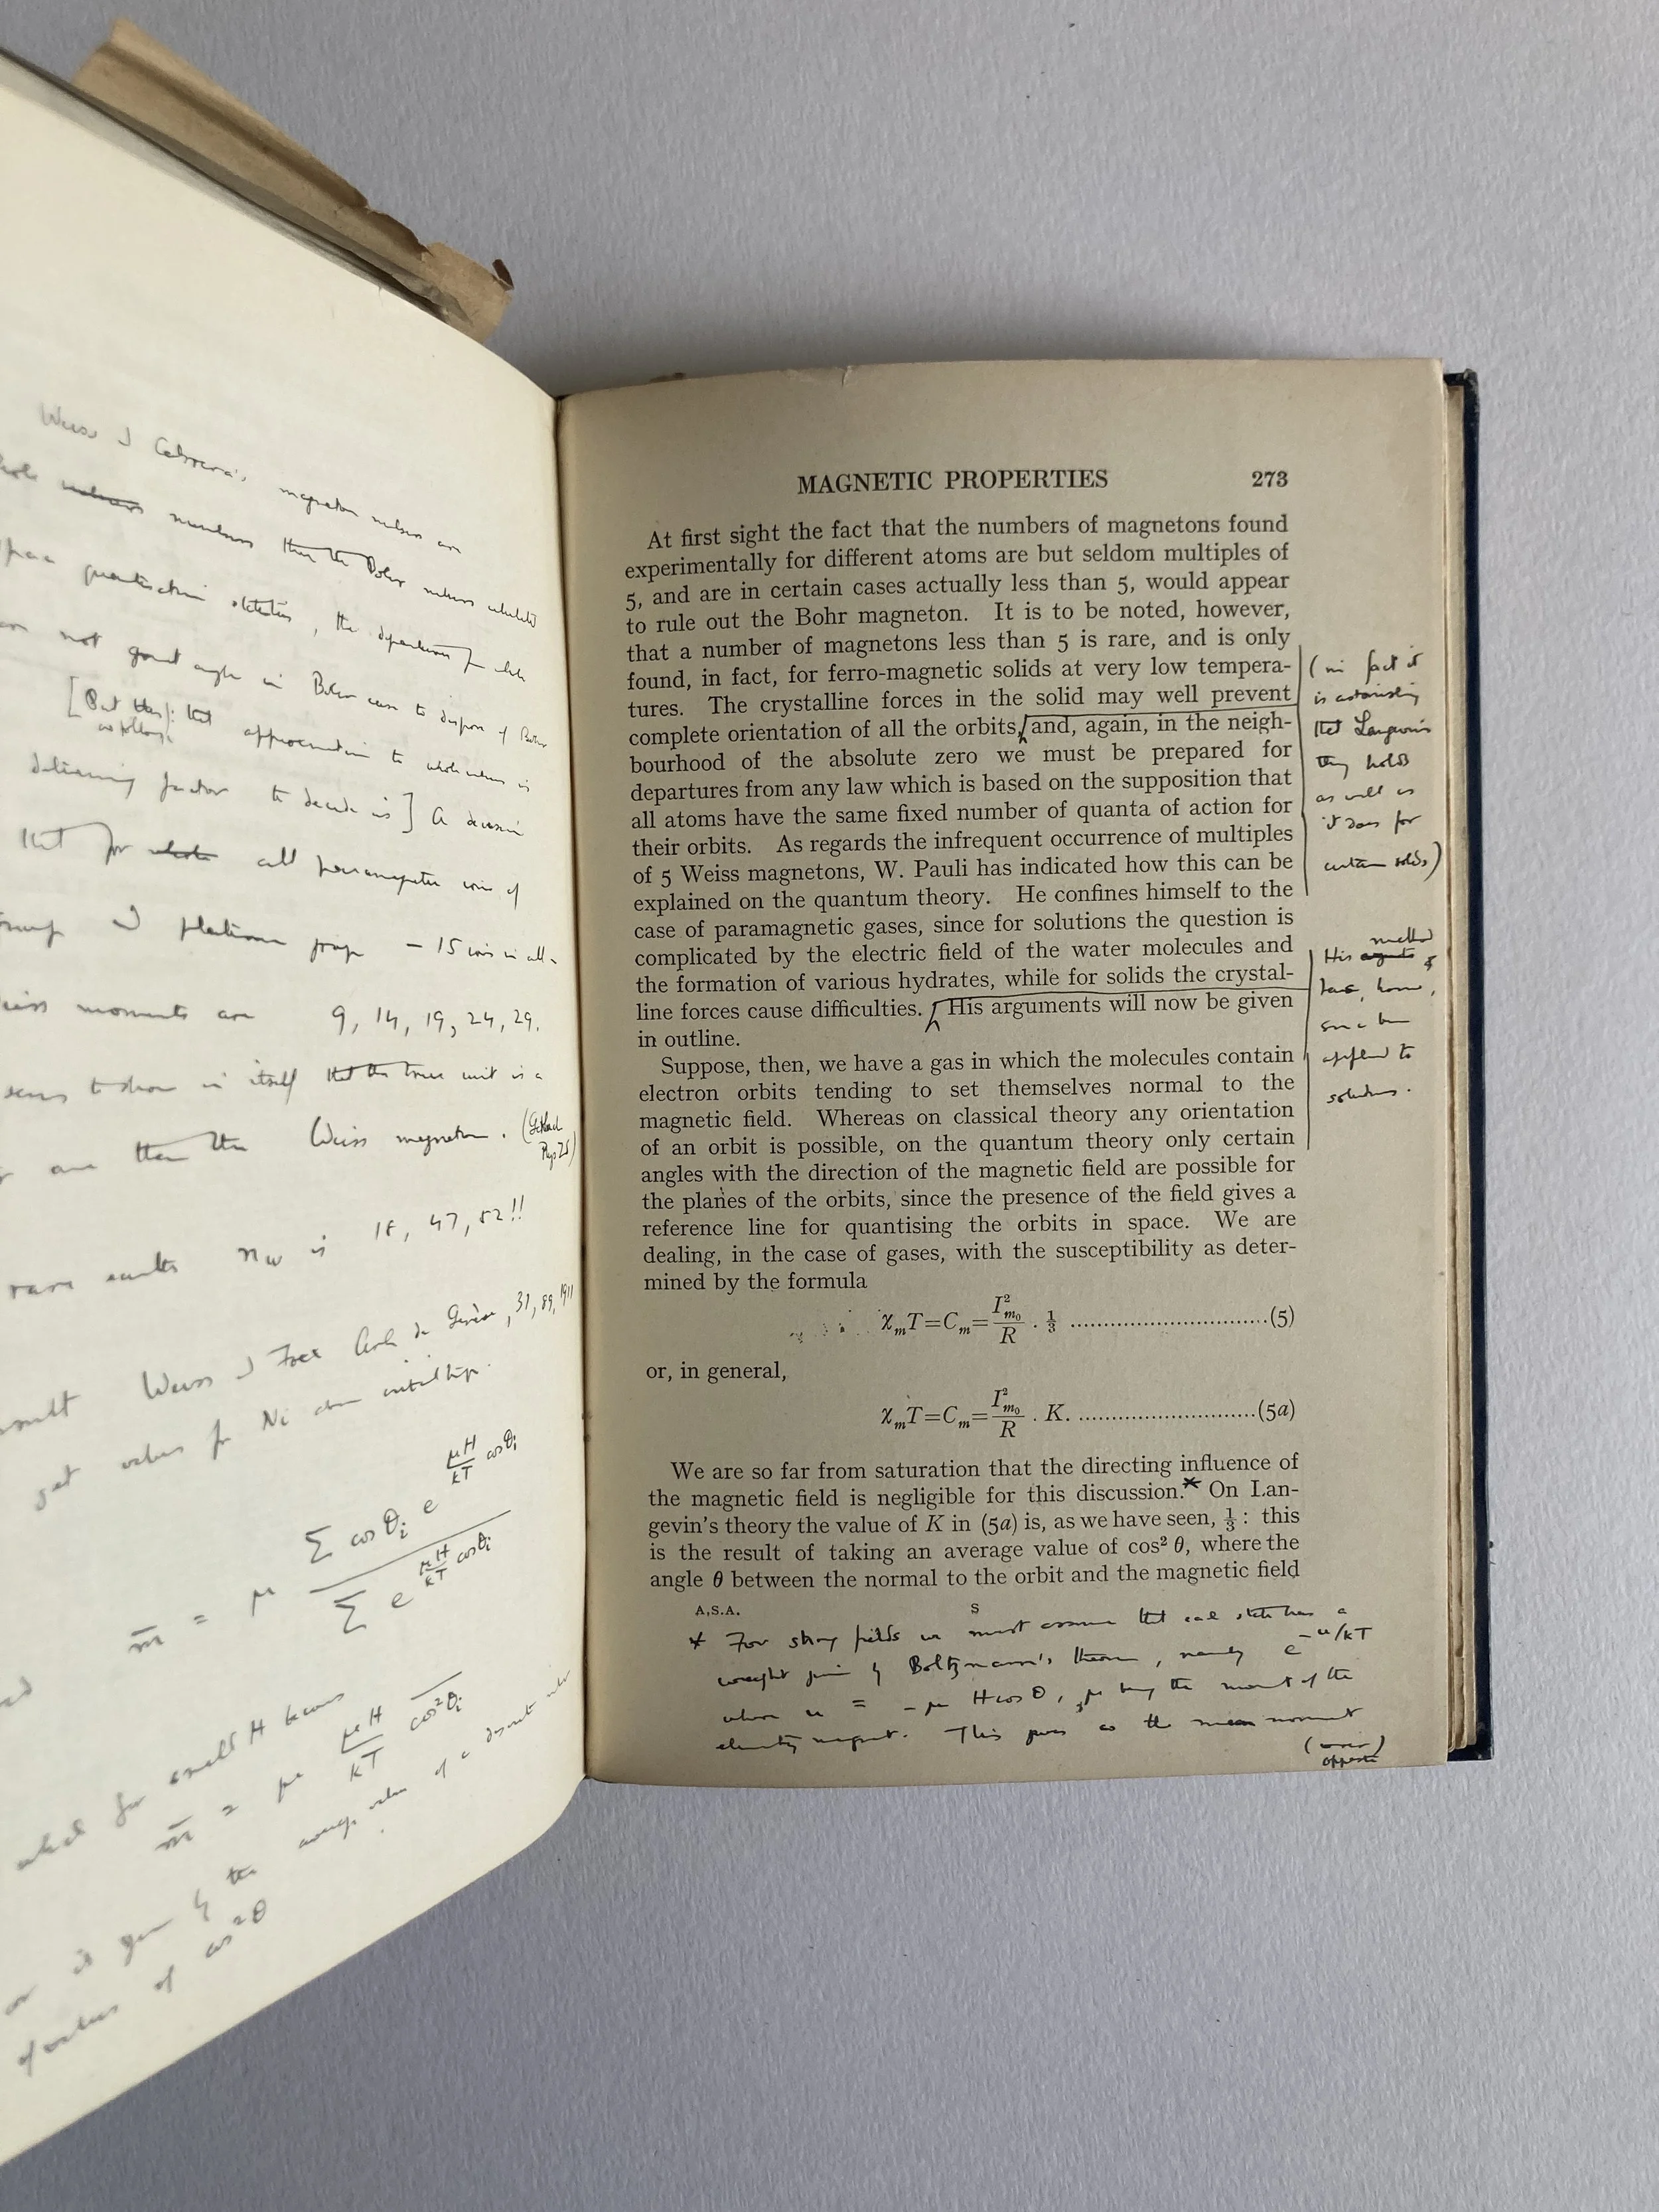 Weiss & Cabrera's magneton numbers are
numbers than the Bohr numbers calculated
quantisation statistics, the departures from whole
are not great enough in Bohr case to dispose of Bohr
[But this: that approximation to whole numbers is
as follows
deciding factor to decide is] A decision
that for all paramagnetic ions of
group & platinum group – 15 ions in all –
Weiss moments are 9, 14, 19, 24, 29.
seems to show in itself that the true unit is a
than the Weiss magneton. (Gerlach
Phys Zs)
rare earths nw is 18, 47, 52!!
result Weiss & Foex Arch de Genève, 31, 89, 1911
get values for Ni above critical temp.
m̄ = μ Σ cos θi e^(μH/kT cos θi) / Σ e^(μH/kT cos θi)
which for small H becomes
m̄ = μ μH/kT cos²θi
or is given by the average value of a discrete
of values of cos²θ
MAGNETIC PROPERTIES 273
At first sight the fact that the numbers of magnetons found
experimentally for different atoms are but seldom multiples of
5, and are in certain cases actually less than 5, would appear
to rule out the Bohr magneton. It is to be noted, however,
that a number of magnetons less than 5 is rare, and is only
found, in fact, for ferro-magnetic solids at very low tempera-
tures. The crystalline forces in the solid may well prevent
complete orientation of all the orbits, and, again, in the neigh-
bourhood of the absolute zero we must be prepared for
departures from any law which is based on the supposition that
all atoms have the same fixed number of quanta of action for
their orbits. As regards the infrequent occurrence of multiples
of 5 Weiss magnetons, W. Pauli has indicated how this can be
explained on the quantum theory. He confines himself to the
case of paramagnetic gases, since for solutions the question is
complicated by the electric field of the water molecules and
the formation of various hydrates, while for solids the crystal-
line forces cause difficulties. His arguments will now be given
in outline.
(in fact it
is astonishing
that Langevin's
theory holds
as well as
it does for
certain solids)
method
His arguments
has, however,
since been
applied to
solutions.
Suppose, then, we have a gas in which the molecules contain
electron orbits tending to set themselves normal to the
magnetic field. Whereas on classical theory any orientation
of an orbit is possible, on the quantum theory only certain
angles with the direction of the magnetic field are possible for
the planes of the orbits, since the presence of the field gives a
reference line for quantising the orbits in space. We are
dealing, in the case of gases, with the susceptibility as deter-
mined by the formula
χmT=Cm=I²m₀/R . ⅓ ..............................(5)
or, in general,
χmT=Cm=I²m₀/R . K. ...........................(5a)
We are so far from saturation that the directing influence of
the magnetic field is negligible for this discussion.* On Lan-
gevin's theory the value of K in (5a) is, as we have seen, ⅓ : this
is the result of taking an average value of cos² θ, where the
angle θ between the normal to the orbit and the magnetic field
A.S.A. S
* For strong fields we must assume that each state has a
weight given by Boltzmann's theorem, namely e^–u/kT
where u = – μ H cos θ, μ being the moment of the
elementary magnet. This gives as the mean moment
(over)
opposite